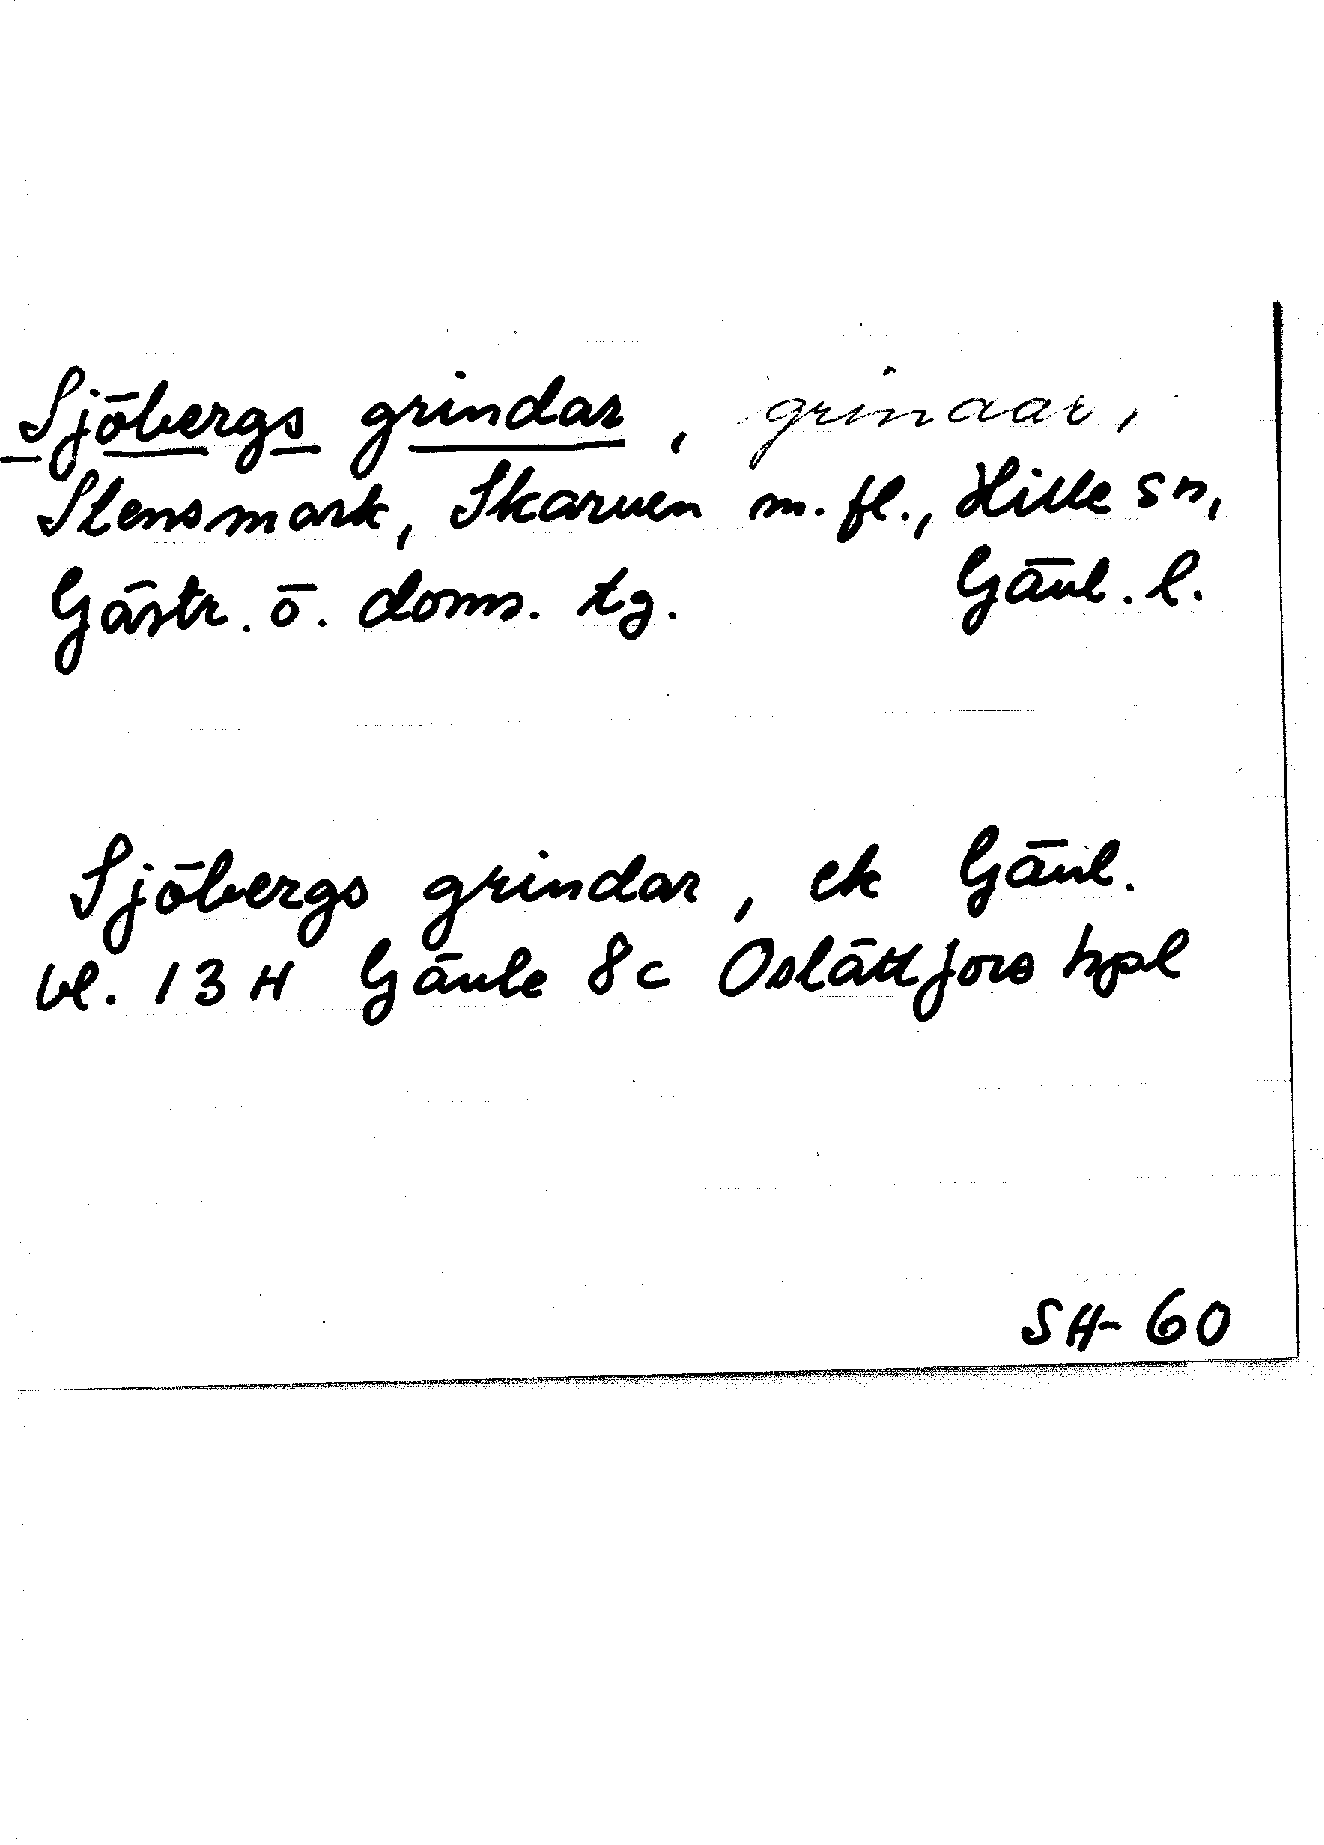 Sjöbergs grindar, grindar,
Stensmark, Skarven m. fl., Hille sn,
Gästr. ö. doms. tg. Gävl. l.
Sjöbergs grindar, ek Gävl.
bl. 13 H Gävle 8c Oslättfors hpl
SH-60